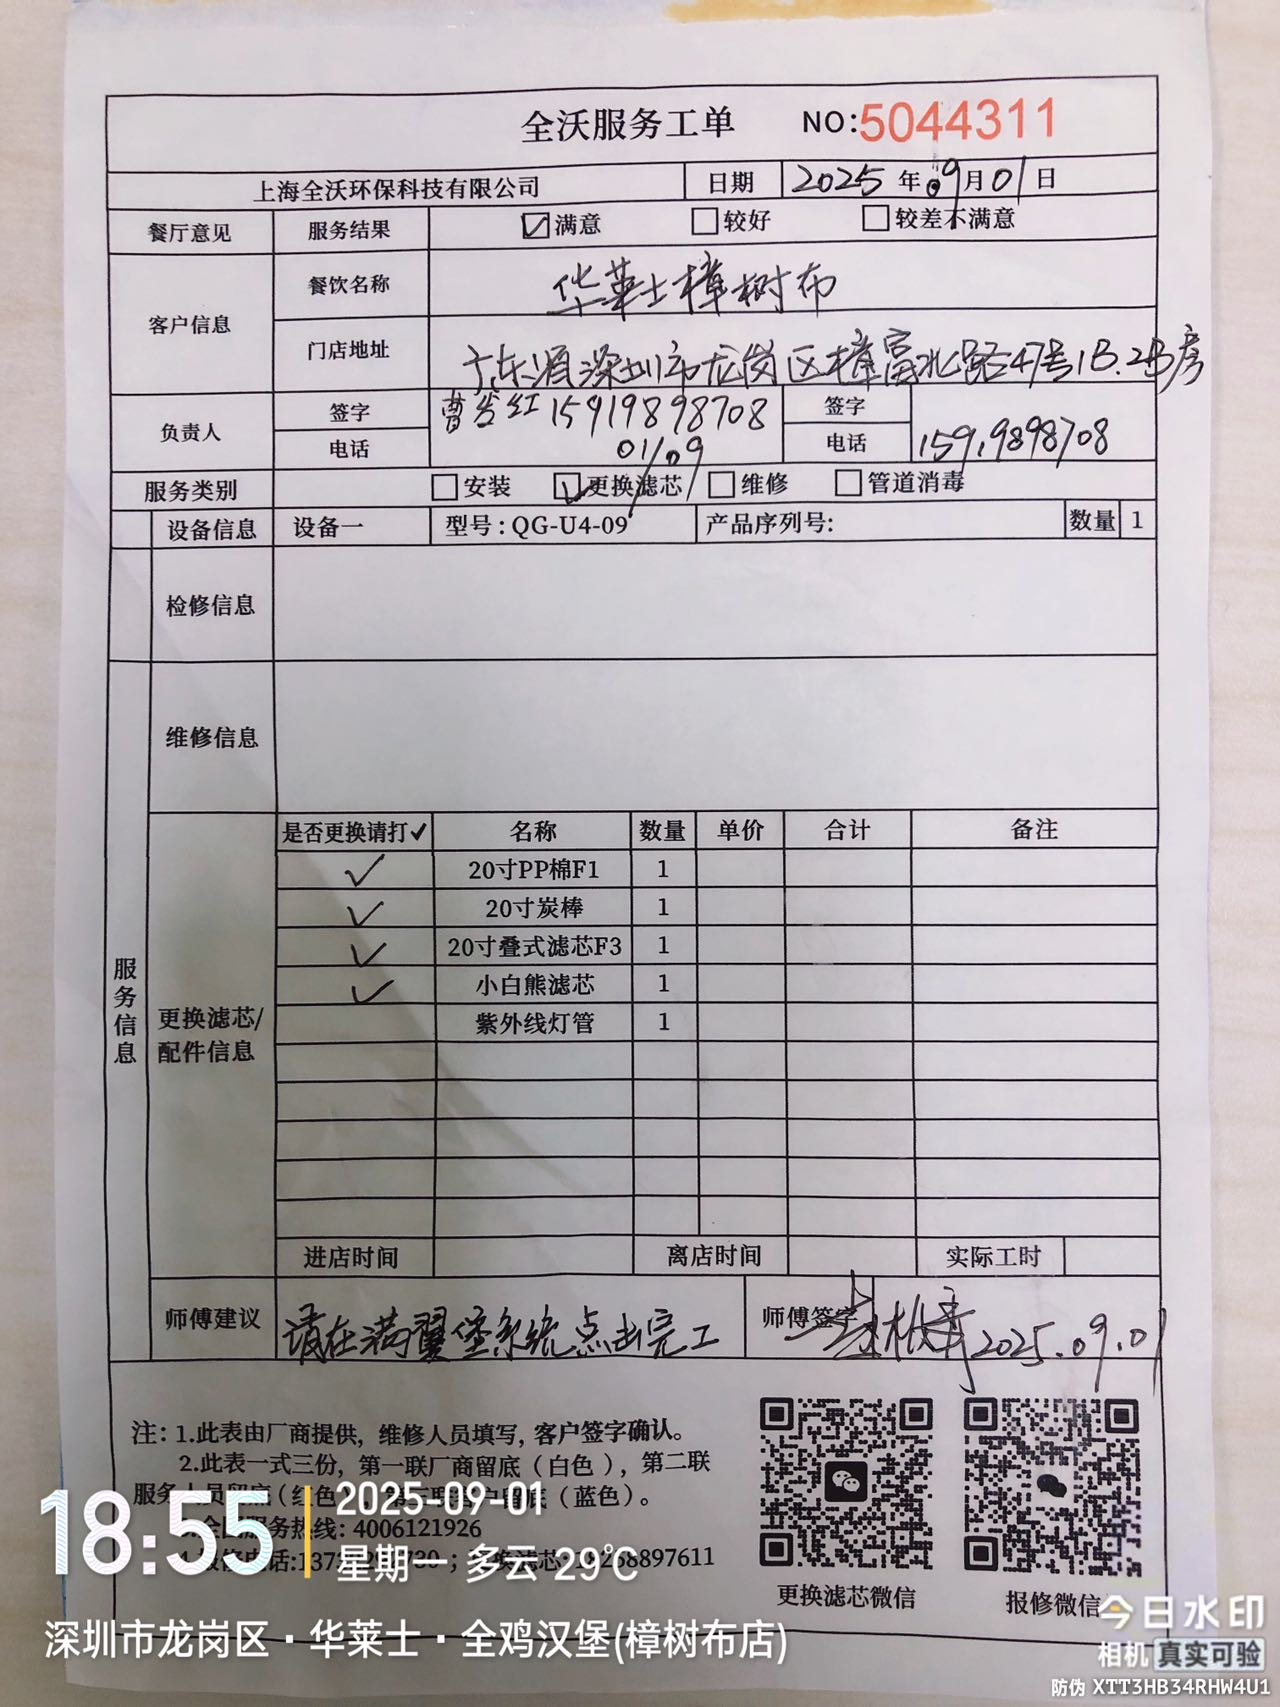 全沃服务工单 NO:5044311
上海全沃环保科技有限公司 日期 2025年09月01日
餐厅意见 服务结果 ☑满意 □较好 □较差不满意
客户信息 餐饮名称 华莱士樟树布
门店地址 广东省深圳市龙岗区樟富北路47号1B.2B房
负责人 签字 曹 红 15919898708 签字
电话 01/09 电话 15919898708
服务类别 □安装 ☑更换滤芯 □维修 □管道消毒
设备信息 设备一 型号:QG-U4-09 产品序列号: 数量 1
检修信息
维修信息
服务信息
更换滤芯/配件信息
是否更换请打✓ 名称 数量 单价 合计 备注
✓ 20寸PP棉F1 1
✓ 20寸炭棒 1
✓ 20寸叠式滤芯F3 1
✓ 小白熊滤芯 1
紫外线灯管 1
进店时间 离店时间 实际工时
师傅建议 请在满翼堡系统点击完工 师傅签字 2025.09.01
注:1.此表由厂商提供,维修人员填写,客户签字确认。
2.此表一式三份,第一联厂商留底(白色),第二联
服务人员留底(红色),第三联客户留底(蓝色)。
全国服务热线:4006121926
更换滤芯微信 报修微信
18:55 2025-09-01
星期一 多云 29℃
深圳市龙岗区·华莱士·全鸡汉堡(樟树布店)
今日水印
相机 真实可验
防伪 XTT3HB34RHW4U1